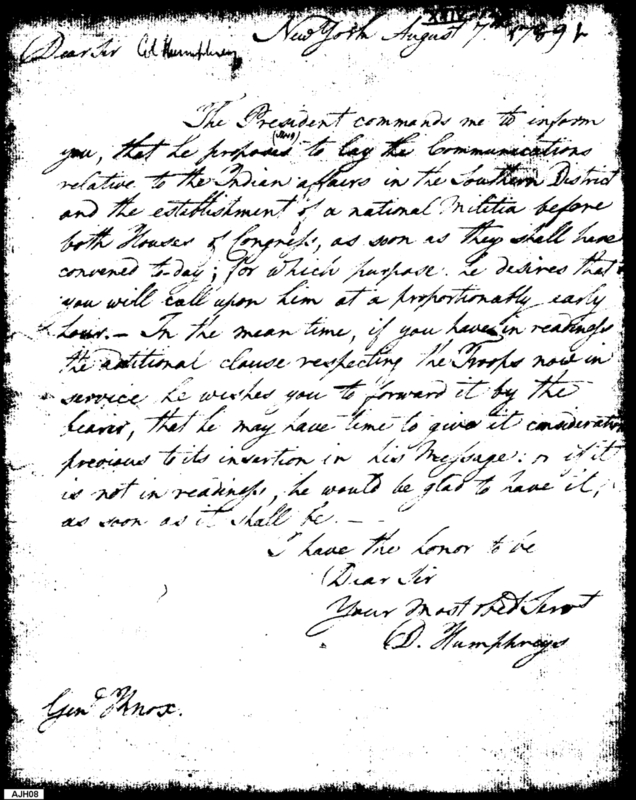 XXIV
New York August 7th 1789
Dear Sir Col Humphrey
The President commands me to inform
you, that he proposes to lay the Communications
relative to the Indian affairs in the Southern District
and the establishment of a national Militia before
both Houses of Congress, as soon as they shall have
convened to-day; for which purpose he desires that
you will call upon him at a proportionably early
hour.— In the mean time, if you have in readiness
the additional clause respecting the Troops now in
service he wishes you to forward it by the
bearer, that he may have time to give it consideration
previous to its insertion in his Message: or if it
is not in readiness, he would be glad to have it,
as soon as it shall be.—
I have the honor to be
Dear Sir
Your most obed Servt
D. Humphreys
Genl Knox.
AJH08